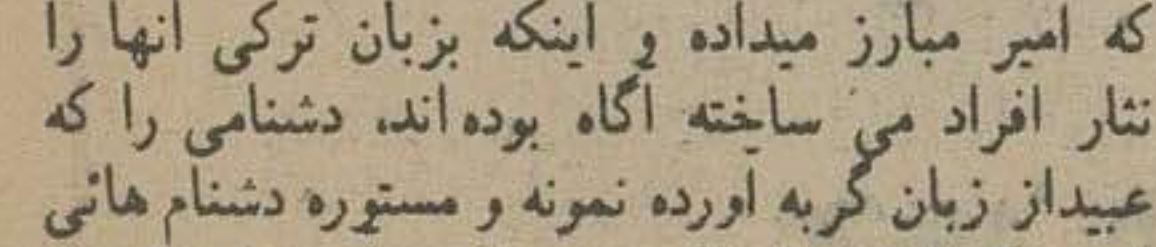 که امیر مبارز میداده و اینکه بزبان ترکی آنها را
نثار افراد می ساخته آگاه بوده اند، دشنامی را که
عبیداز زبان گربه آورده نمونه و مستوره دشنام هائی